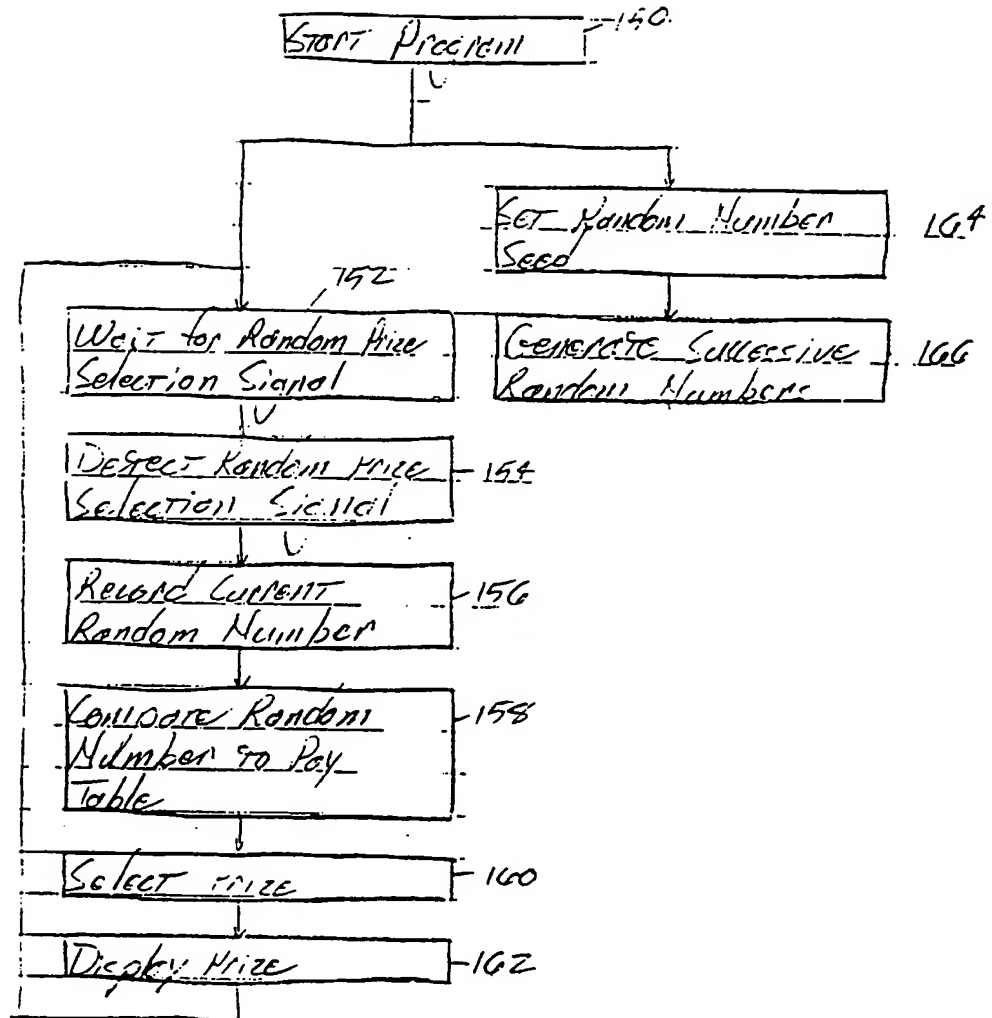 Start Program 150
Set Random Number 164
Seed
152
Wait for Random Prize
Selection Signal
Generate Successive 166
Random Numbers
Detect Random Prize 154
Selection Signal
Record Current 156
Random Number
Compare Random 158
Number to Pay
Table
Select Prize 160
Display Prize 162